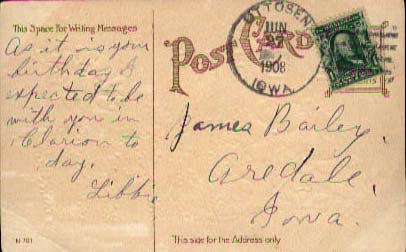 This Space For Writing Messages
As it is your
birthday I
expected to be
with you in
Clarion to
day.
Libbie
N 701
POST CARD
OTTOSEN
JUN
27
1908
IOWA
James Bailey,
Aredale,
Iowa.
This side for the Address only